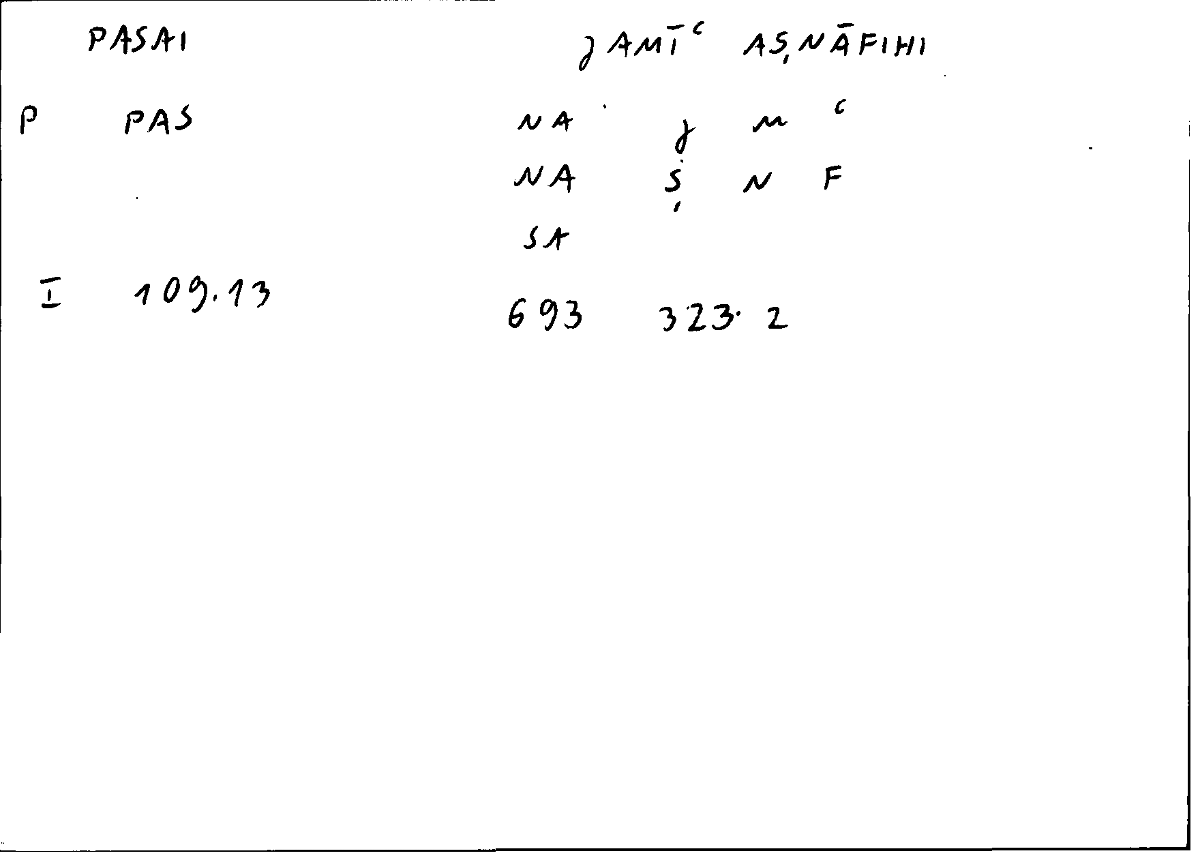 PASAI ɈAMĪʿ AṢNĀFIHI
P PAS NA Ɉ M ʿ
NA Ṣ N F
SA
I 109.13
693 323.2